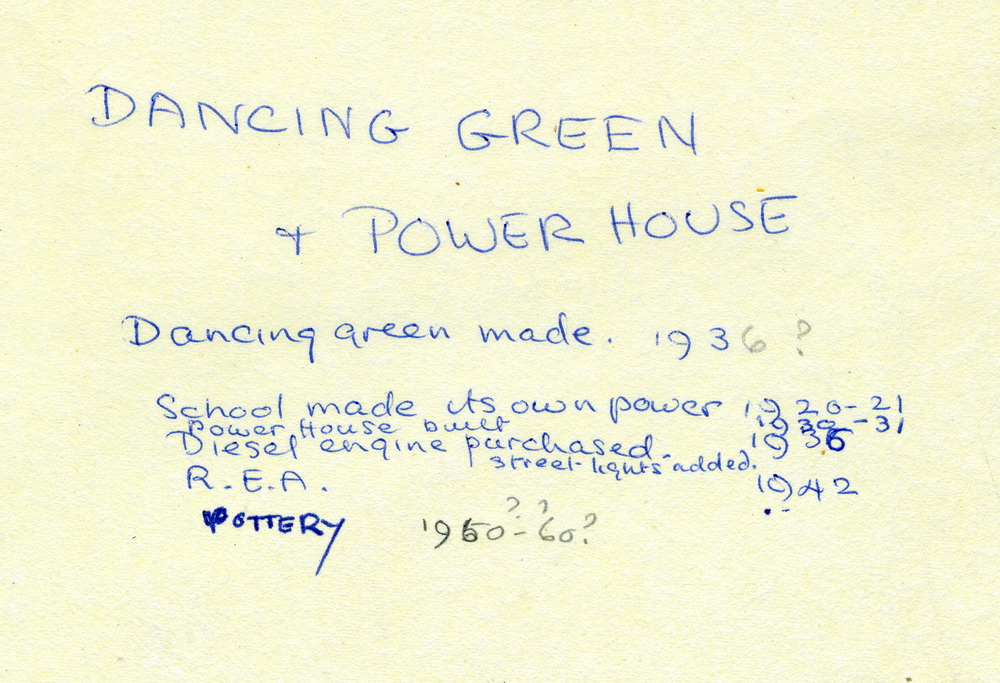 DANCING GREEN
+ POWER HOUSE
Dancing green made. 1936 ?
School made its own power 1920-21
Power House built 1930-31
Diesel engine purchased. 1936
street-lights added.
R.E.A. 1942
POTTERY 1950-60?
? ?